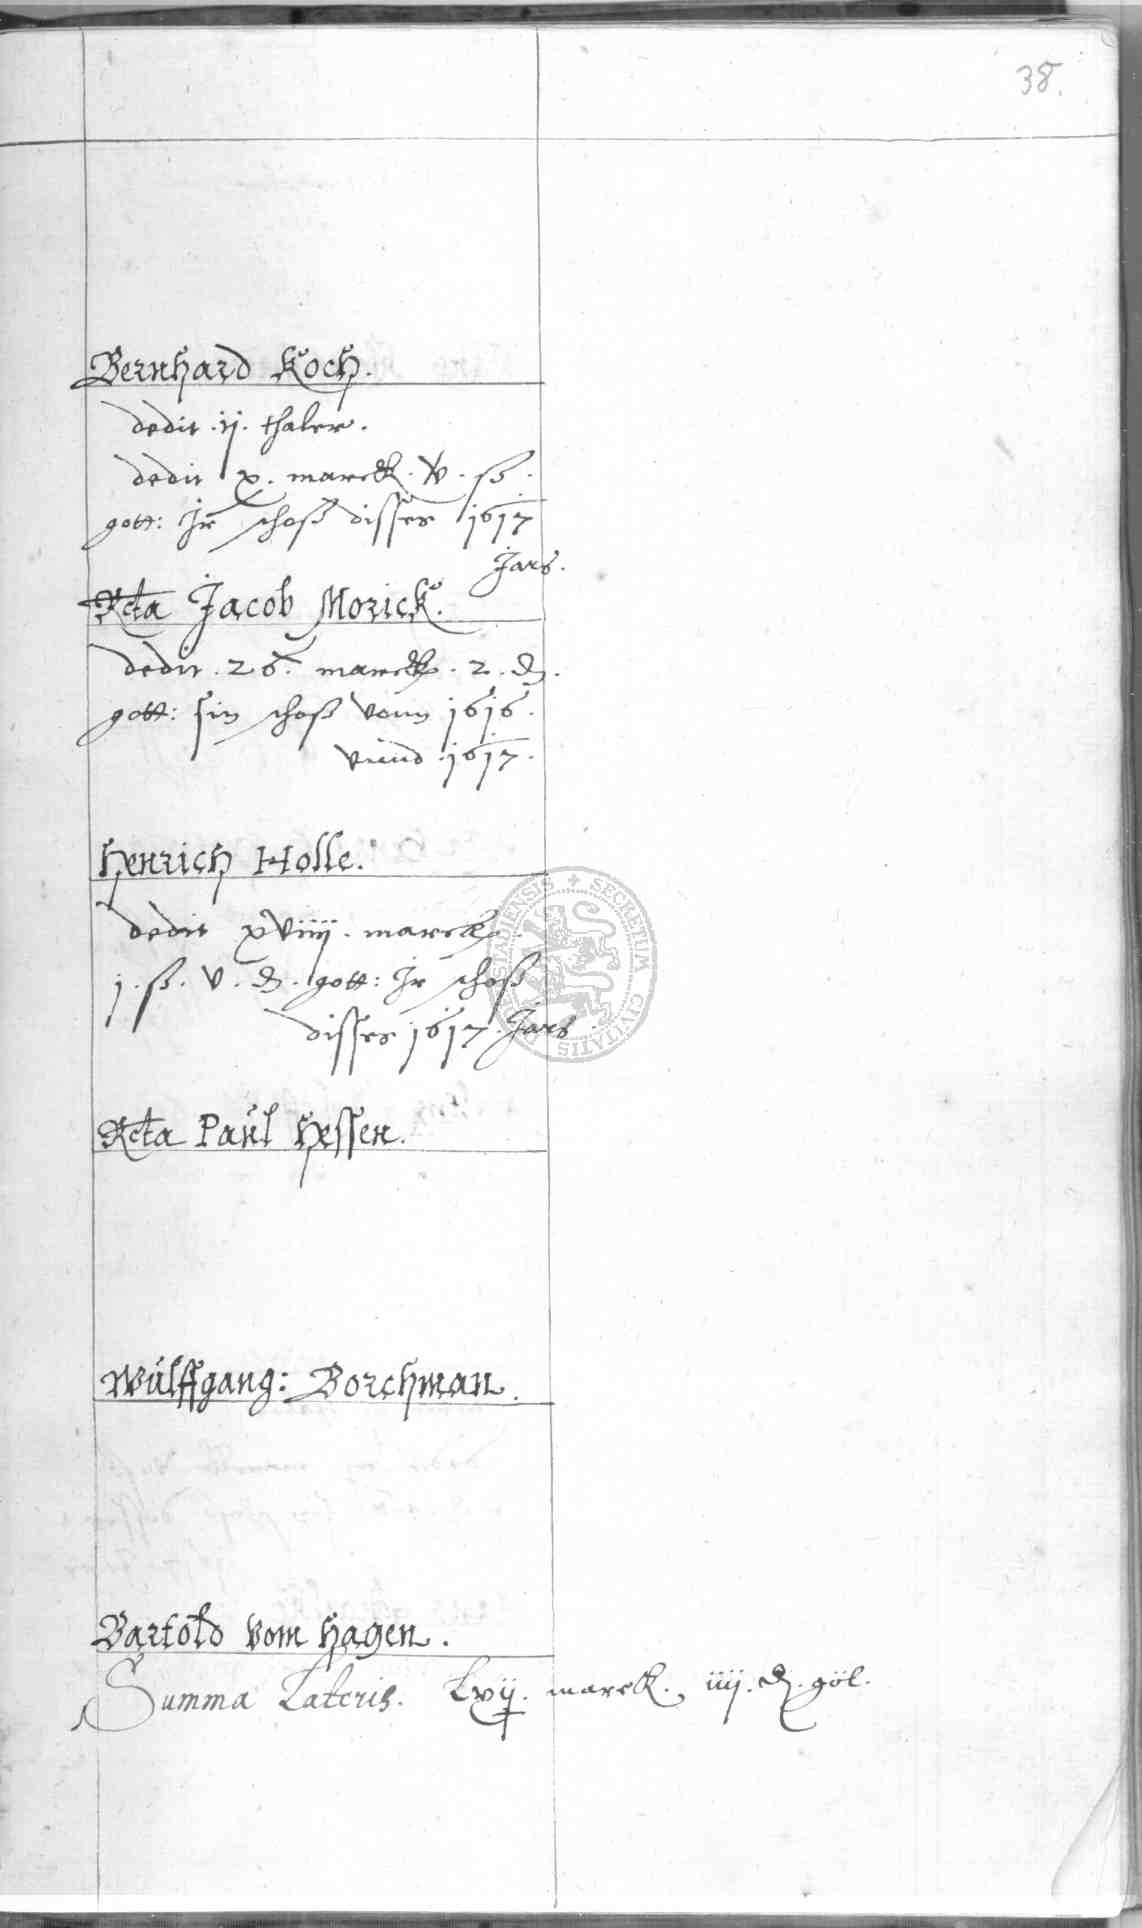 38.
Bernhard Koch.
dedit .ij. thaler.
dedit x. marck. v. ß.
gott: Jr schoß disses 1617
Jars.
Rcta Jacob Morick.
dedit .26. marck. 2. ₰.
gott: sin schoß vonn 1616.
vnnd .1617.
Henrich Holle.
dedit xviiij. marck.
j. ß. v. ₰. gott: Jr schoß
disses 1617. Jars
Rcta Paul Hessen.
Wulffgang: Borchman.
Bartold vom Hagen.
Summa Lateris. Lxij. marck. iiij. ₰. göl.
SECRETUM CIVITATIS STADIENSIS